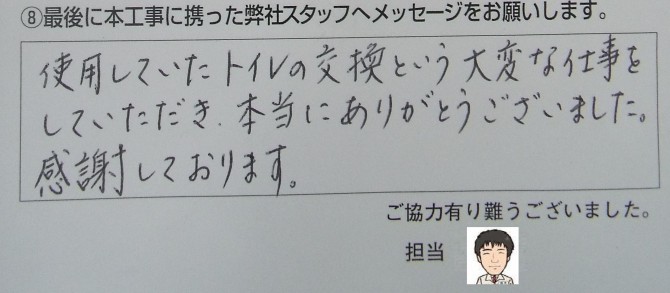 ⑧最後に本工事に携った弊社スタッフへメッセージをお願いします。
使用していたトイレの交換という大変な仕事を
していただき、本当にありがとうございました。
感謝しております。
ご協力有り難うございました。
担当